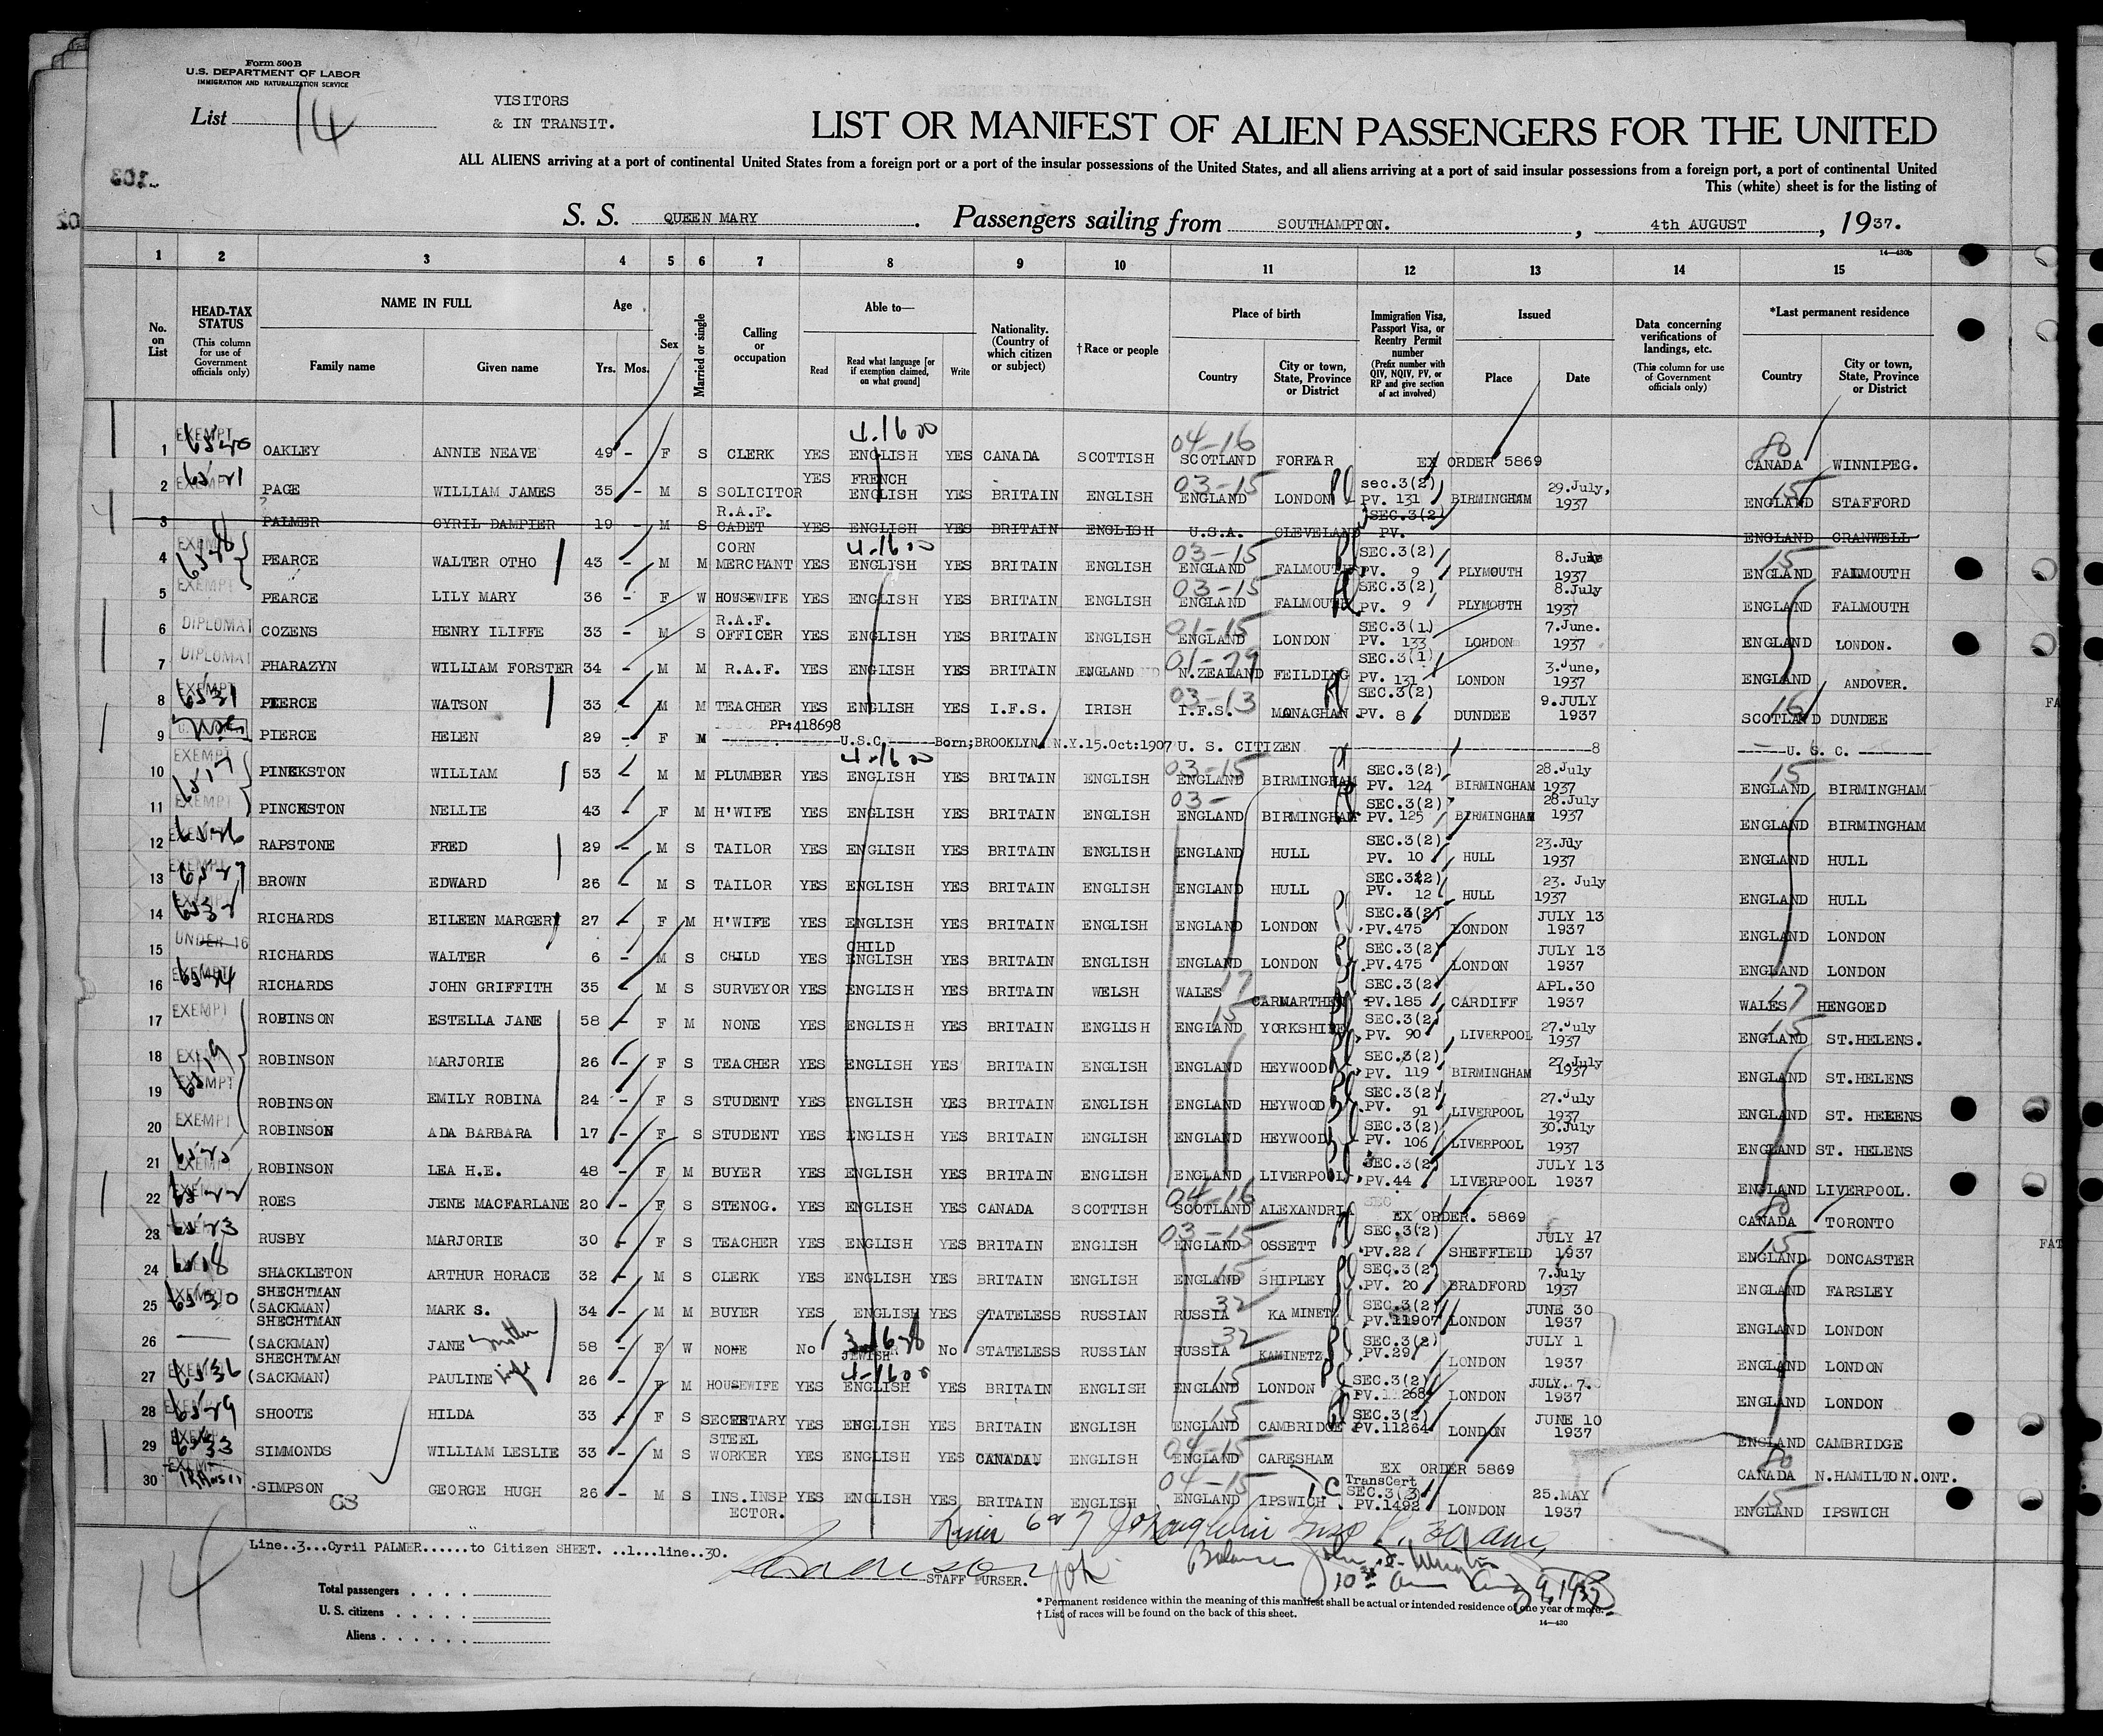 Form 500B
U.S. DEPARTMENT OF LABOR
IMMIGRATION AND NATURALIZATION SERVICE
List 14
VISITORS
& IN TRANSIT.
LIST OR MANIFEST OF ALIEN PASSENGERS FOR THE UNITED
ALL ALIENS arriving at a port of continental United States from a foreign port or a port of the insular possessions of the United States, and all aliens arriving at a port of said insular possessions from a foreign port, a port of continental United
This (white) sheet is for the listing of
S. S. QUEEN MARY. Passengers sailing from SOUTHAMPTON., 4th AUGUST, 1937.
14—430b
1 2 3 4 5 6 7 8 9 10 11 12 13 14 15
No. on List
HEAD-TAX STATUS (This column for use of Government officials only)
NAME IN FULL
Family name Given name
Age Yrs. Mos.
Sex
Married or single
Calling or occupation
Able to— Read Read what language [or if exemption claimed, on what ground] Write
Nationality. (Country of which citizen or subject)
†Race or people
Place of birth
Country City or town, State, Province or District
Immigration Visa, Passport Visa, or Reentry Permit number (Prefix number with QIV, NQIV, PV, or RP and give section of act involved)
Issued Place Date
Data concerning verifications of landings, etc. (This column for use of Government officials only)
*Last permanent residence
Country City or town, State, Province or District
1 EXEMPT OAKLEY ANNIE NEAVE 49 - F S CLERK YES ENGLISH 4-1600 YES CANADA SCOTTISH 04-16 SCOTLAND FORFAR EX ORDER 5869 80 CANADA WINNIPEG.
2 EXEMPT PAGE WILLIAM JAMES 35 - M S SOLICITOR YES FRENCH ENGLISH YES BRITAIN ENGLISH 03-15 ENGLAND LONDON sec.3(2) PV. 131 BIRMINGHAM 29.July, 1937 15 ENGLAND STAFFORD
3 PALMER CYRIL DAMPIER 19 - M S R.A.F. CADET YES ENGLISH YES BRITAIN ENGLISH U.S.A. CLEVELAND SEC.3(2) PV. ENGLAND CRANWELL
4 EXEMPT PEARCE WALTER OTHO 43 - M M CORN MERCHANT YES ENGLISH 4-1600 YES BRITAIN ENGLISH 03-15 ENGLAND FALMOUTH SEC.3(2) PV. 9 PLYMOUTH 8.July 1937 15 ENGLAND FALMOUTH
5 EXEMPT PEARCE LILY MARY 36 - F W HOUSEWIFE YES ENGLISH YES BRITAIN ENGLISH 03-15 ENGLAND FALMOUTH SEC.3(2) PV. 9 PLYMOUTH 8.July 1937 ENGLAND FALMOUTH
6 DIPLOMAT COZENS HENRY ILIFFE 33 - M S R.A.F. OFFICER YES ENGLISH YES BRITAIN ENGLISH 01-15 ENGLAND LONDON SEC.3(1) PV. 133 LONDON 7.June. 1937 ENGLAND LONDON.
7 DIPLOMAT PHARAZYN WILLIAM FORSTER 34 - M M R.A.F. YES ENGLISH YES BRITAIN ENGLAND 01-79 N.ZEALAND FEILDING SEC.3(1) PV. 131 LONDON 3.June, 1937 ENGLAND ANDOVER.
8 EXEMPT PIERCE WATSON 33 - M M TEACHER YES ENGLISH YES I.F.S. IRISH 03-13 I.F.S. MONAGHAN SEC.3(2) PV. 8 DUNDEE 9.JULY 1937 16 SCOTLAND DUNDEE
9 PIERCE HELEN 29 - F M PP:418698 U.S.C. Born;BROOKLYN N.Y.15.Oct:1907 U. S. CITIZEN 8 U. S. C.
10 EXEMPT PINCKSTON WILLIAM 53 - M M PLUMBER YES ENGLISH 4-1600 YES BRITAIN ENGLISH 03-15 ENGLAND BIRMINGHAM SEC.3(2) PV. 124 BIRMINGHAM 28.July 1937 15 ENGLAND BIRMINGHAM
11 EXEMPT PINCKSTON NELLIE 43 - F M H'WIFE YES ENGLISH YES BRITAIN ENGLISH 03- ENGLAND BIRMINGHAM SEC.3(2) PV. 125 BIRMINGHAM 28.July 1937 ENGLAND BIRMINGHAM
12 EXEMPT RAPSTONE FRED 29 - M S TAILOR YES ENGLISH YES BRITAIN ENGLISH ENGLAND HULL SEC.3(2) PV. 10 HULL 23.July 1937 ENGLAND HULL
13 EXEMPT BROWN EDWARD 26 - M S TAILOR YES ENGLISH YES BRITAIN ENGLISH ENGLAND HULL SEC.3(2) PV. 12 HULL 23. July 1937 ENGLAND HULL
14 EXEMPT RICHARDS EILEEN MARGERY 27 - F M H'WIFE YES ENGLISH YES BRITAIN ENGLISH ENGLAND LONDON SEC.3(2) PV.475 LONDON JULY 13 1937 ENGLAND LONDON
15 UNDER 16 RICHARDS WALTER 6 - M S CHILD YES CHILD ENGLISH YES BRITAIN ENGLISH ENGLAND LONDON SEC.3(2) PV.475 LONDON JULY 13 1937 ENGLAND LONDON
16 EXEMPT RICHARDS JOHN GRIFFITH 35 - M S SURVEYOR YES ENGLISH YES BRITAIN WELSH WALES 17 CARMARTHEN SEC.3(2 PV.185 CARDIFF APL.30 1937 WALES 17 HENGOED
17 EXEMPT ROBINSON ESTELLA JANE 58 - F M NONE YES ENGLISH YES BRITAIN ENGLISH 15 ENGLAND YORKSHIRE SEC.3(2) PV. 90 LIVERPOOL 27.July 1937 15 ENGLAND ST.HELENS.
18 EXEMPT ROBINSON MARJORIE 26 - F S TEACHER YES ENGLISH YES BRITAIN ENGLISH ENGLAND HEYWOOD SEC.3(2) PV. 119 BIRMINGHAM 27.July 1937 ENGLAND ST.HELENS
19 EXEMPT ROBINSON EMILY ROBINA 24 - F S STUDENT YES ENGLISH YES BRITAIN ENGLISH ENGLAND HEYWOOD SEC.3(2) PV. 91 LIVERPOOL 27.July 1937 ENGLAND ST. HELENS
20 EXEMPT ROBINSON ADA BARBARA 17 - F S STUDENT YES ENGLISH YES BRITAIN ENGLISH ENGLAND HEYWOOD SEC.3(2) PV. 106 LIVERPOOL 30.July 1937 ENGLAND ST. HELENS
21 EXEMPT ROBINSON LEA H.E. 48 - F M BUYER YES ENGLISH YES BRITAIN ENGLISH ENGLAND LIVERPOOL SEC.3(2) PV.44 LIVERPOOL JULY 13 1937 ENGLAND LIVERPOOL.
22 EXEMPT ROES JENE MACFARLANE 20 - F S STENOG. YES ENGLISH YES CANADA SCOTTISH 04-16 SCOTLAND ALEXANDRIA EX ORDER. 5869 80 CANADA TORONTO
23 RUSBY MARJORIE 30 - F S TEACHER YES ENGLISH YES BRITAIN ENGLISH 03-15 ENGLAND OSSETT SEC.3(2) PV.22 SHEFFIELD JULY 17 1937 15 ENGLAND DONCASTER
24 SHACKLETON ARTHUR HORACE 32 - M S CLERK YES ENGLISH YES BRITAIN ENGLISH 15 ENGLAND SHIPLEY SEC.3(2) PV. 20 BRADFORD 7.July 1937 ENGLAND FARSLEY
25 EXEMPT SHECHTMAN (SACKMAN) MARK S. 34 - M M BUYER YES ENGLISH YES STATELESS RUSSIAN 32 RUSSIA KAMINETZ SEC.3(2) PV.11907 LONDON JUNE 30 1937 ENGLAND LONDON
26 SHECHTMAN (SACKMAN) JANE mother 58 - F W NONE No JEWISH No STATELESS RUSSIAN 32 RUSSIA KAMINETZ SEC.3(2) PV.29 LONDON JULY 1 1937 ENGLAND LONDON
27 EXEMPT SHECHTMAN (SACKMAN) PAULINE wife 26 - F M HOUSEWIFE YES ENGLISH 4-1600 YES BRITAIN ENGLISH 15 ENGLAND LONDON SEC.3(2) PV. 11268 LONDON JULY. 7. 1937 ENGLAND LONDON
28 EXEMPT SHOOTE HILDA 33 - F S SECRETARY YES ENGLISH YES BRITAIN ENGLISH 15 ENGLAND CAMBRIDGE SEC.3(2) PV.11264 LONDON JUNE 10 1937 ENGLAND CAMBRIDGE
29 EXEMPT SIMMONDS WILLIAM LESLIE 33 - M S STEEL WORKER YES ENGLISH YES CANADA ENGLISH 04-15 ENGLAND CARESHAM EX ORDER 5869 80 CANADA N.HAMILTON.ONT.
30 EXEMPT TRANSIT SIMPSON GEORGE HUGH 26 - M S INS.INSPECTOR. YES ENGLISH YES BRITAIN ENGLISH 04-15 ENGLAND IPSWICH TransCert SEC.3(3) PV.1492 LONDON 25.MAY 1937 15 ENGLAND IPSWICH
Line..3...Cyril PALMER......to Citizen SHEET. ..1...line..30.
14
STAFF PURSER.
Total passengers
U. S. citizens
Aliens
* Permanent residence within the meaning of this manifest shall be actual or intended residence of one year or more.
† List of races will be found on the back of this sheet.
14—430